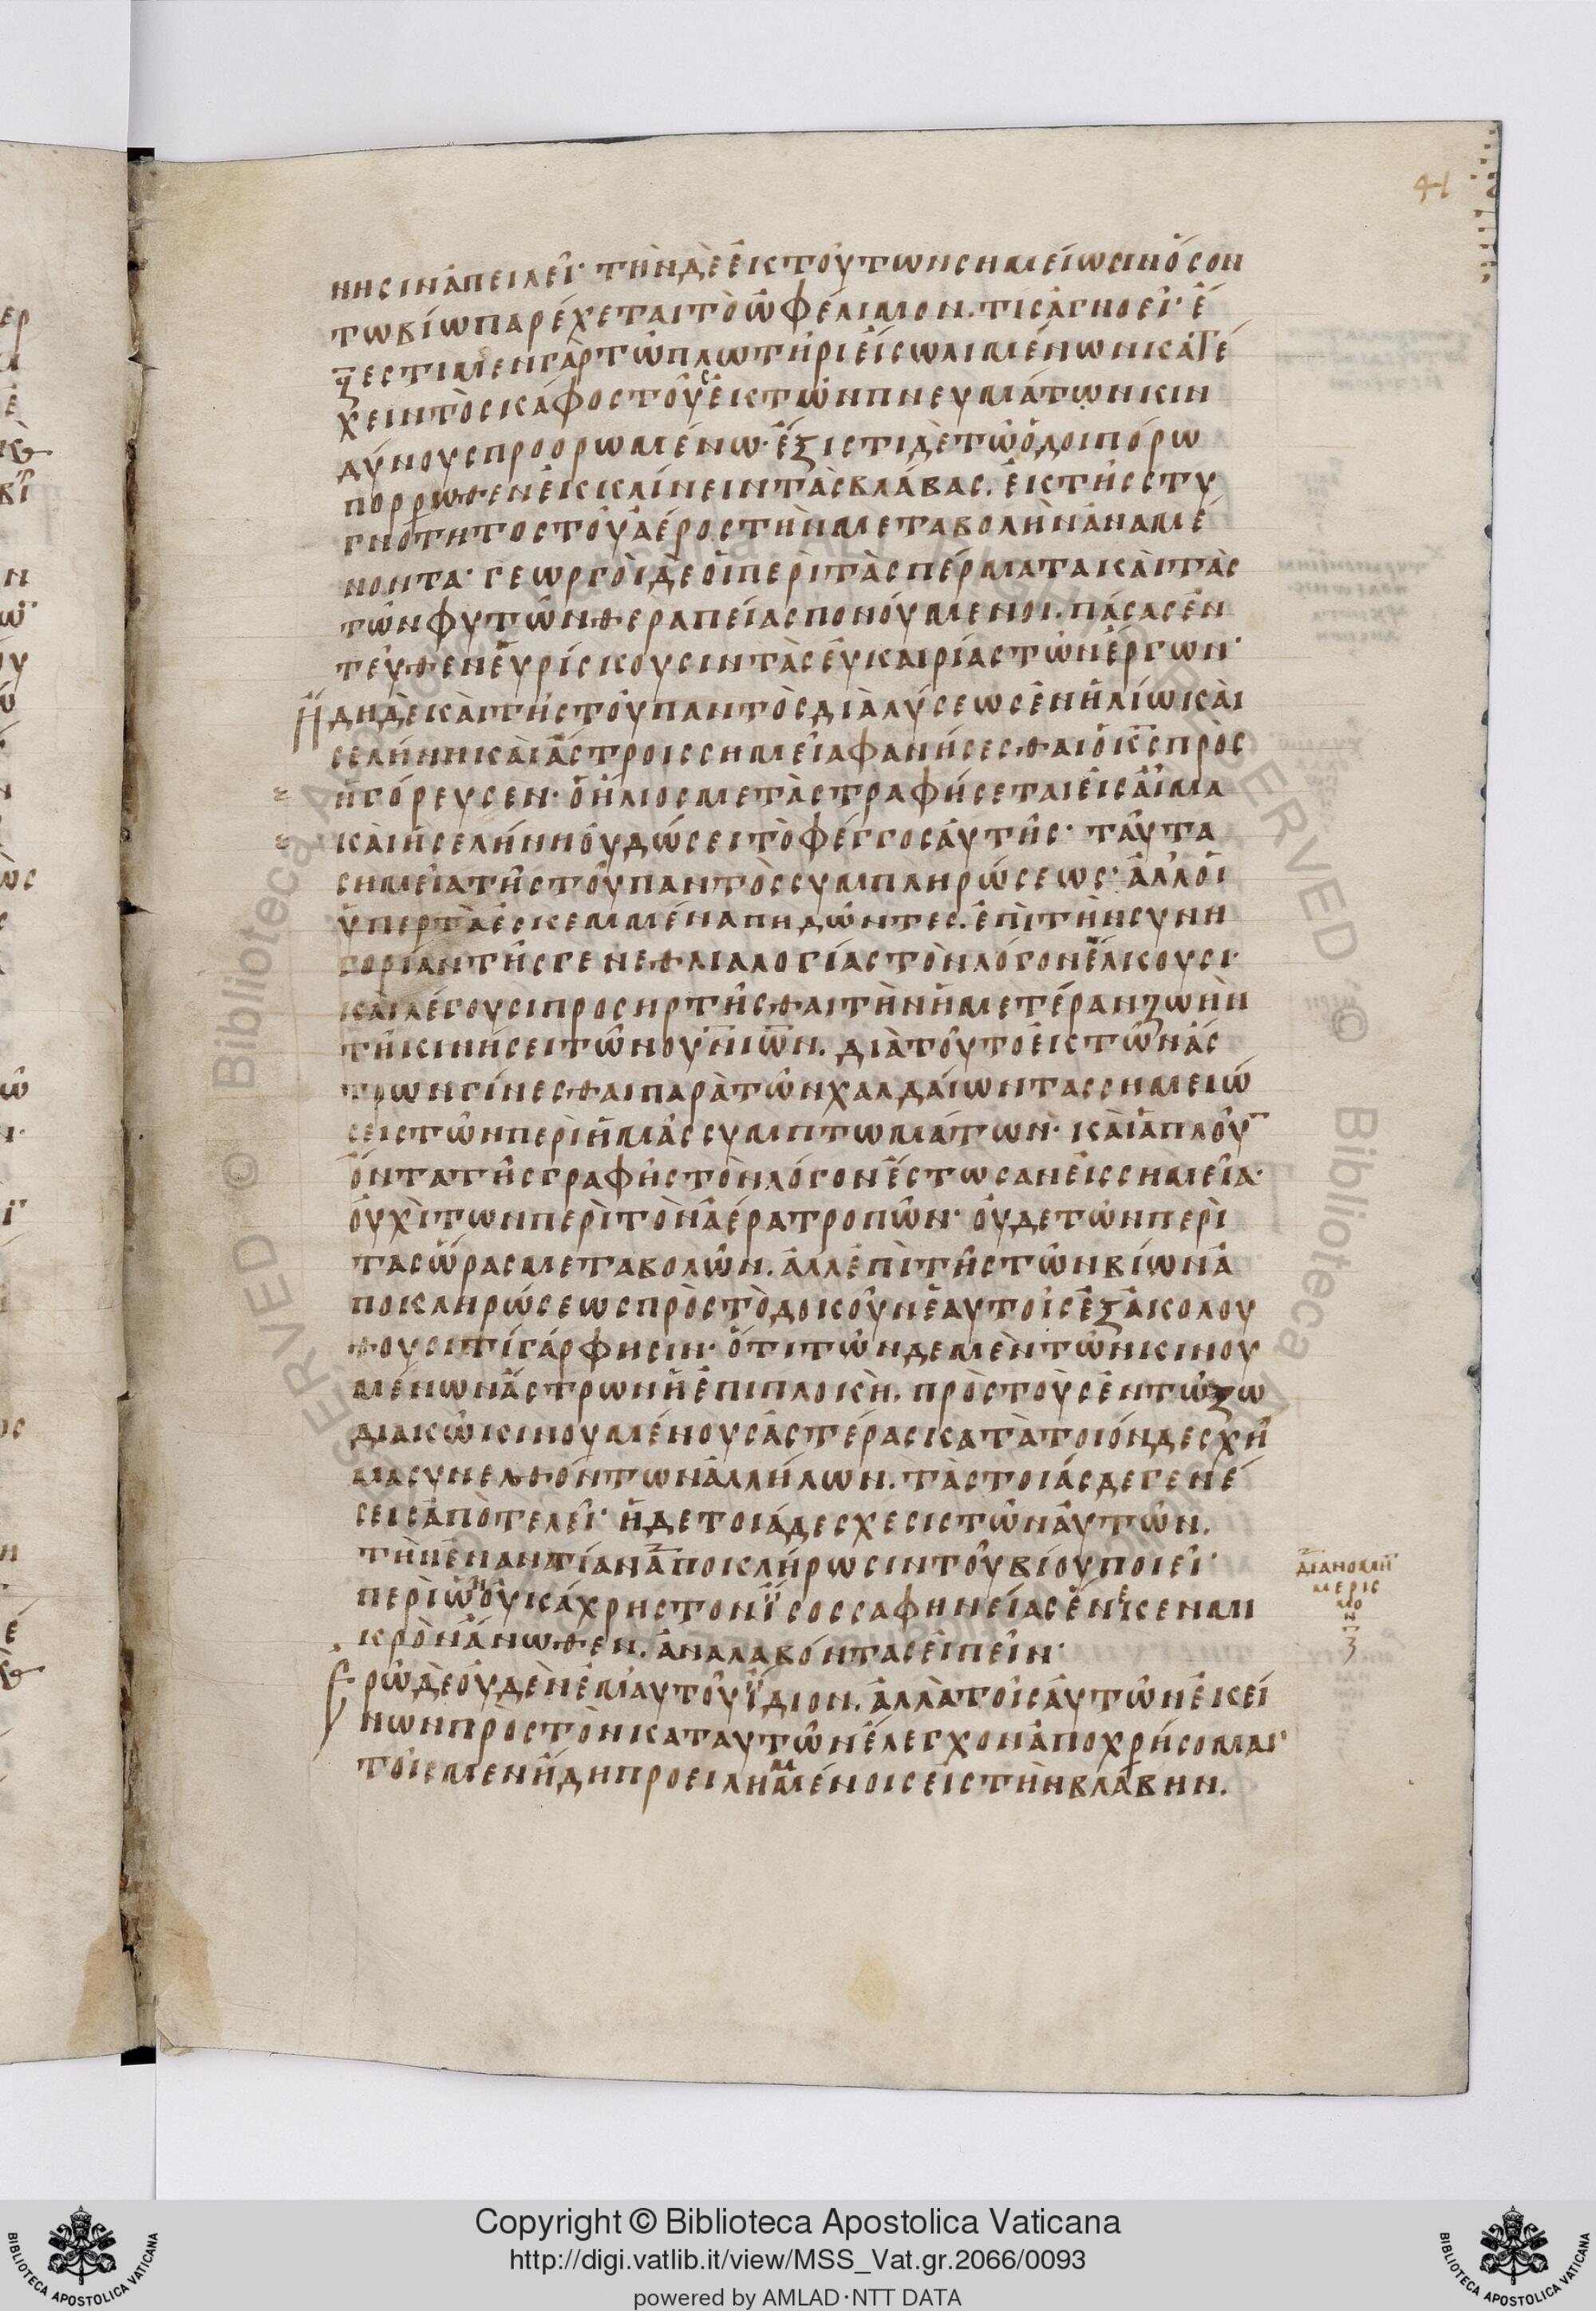 41
νησιν ἀπειλεῖ· τὴν δὲ ἐκ τούτων σημείωσιν ὅσον
τω βίω παρέχεται τὸ ὠφέλιμον. τίς ἀγνοεῖ· ἔ
ξεστι μεν γὰρ τῶ πλωτῆρι εἴσω λιμένων κατέ
χειν τὸ σκάφος τοὺς ἐκ τῶν πνευμάτων κιν
δύνους προορωμένω· ἔξιστι δὲ τῶ ὁδοιπόρω
πόρρωθεν ἐκκλίνειν τὰς βλάβας. ἐκ τῆς στυ
γνότητος τοῦ ἀέρος τὴν μεταβολὴν ἀναμέ
νοντα· γεωργοὶ δὲ οἱ περὶ τὰ σπέρματα καὶ τὰς
τῶν φυτῶν θεραπείας πονούμενοι. πάσας ἐν
τεῦθεν εὑρίσκουσιν τὰς εὐκαιρίας τῶν ἔργων·
ἤδη δὲ καὶ τῆς τοῦ παντὸς διαλύσεως ἐν ἡλίω καὶ
σελήνη καὶ ἄστροις σημεῖα φανήσεσθαι ὁ κς προσ
ηγόρευσεν· ὁ ἥλιος μεταστραφήσεται εἰς αἷμα
καὶ ἡ σελήνη οὐ δώσει τὸ φέγγος αὐτῆς· ταῦτα
σημεῖα τῆς τοῦ παντὸς συμπληρώσεως· ἀλλ οἱ
ὑπερ τὰ ἐσκεμμένα πηδῶντες. ἐπὶ τὴν συνη
γορίαν τῆς γενεθλιαλογίας τὸν λόγον ἕλκουσι·
καὶ λέγουσι προσηρτῆσθαι τὴν ἡμετέραν ζωὴν
τῆ κινήσει τῶν οὐνιων. διὰ τοῦτο ἐκ τῶν ἄσ
τρων γίνεσθαι παρὰ τῶν χαλδαίων τας σημειώ
σεις τῶν περὶ ἡμᾶς συμπτωμάτων· καὶ ἁπλοῦ
ὄντα τῆς γραφῆς τὸν λόγον ἔστωσαν εἰς σημεῖα·
οὐχὶ των περὶ τὸν ἀέρα τροπῶν· οὐδε τῶν περὶ
τας ὥρας μεταβολῶν. ἀλλ ἐπὶ τῆς τῶν βίων ἀ
ποκληρώσεως πρὸς τὸ δοκοῦν ἑαυτοῖς ἐξακολου
θουσι τί γάρ φησιν· ὅτι τῶνδε μὲν τῶν κινου
μένων ἄστρων ἡ ἐπιπλοκὴ. πρὸς τοὺς ἐν τῶ ζω
διακῶ κινουμένους ἀστέρας κατὰ τοιόνδε σχῆ
μα συνελθόντων ἀλλήλων. τὰς τοιάσδε γενέ
σεις ἀποτελεῖ· ἡ δε τοιάδε σχεσις τῶν αὐτῶν.
τὴν ἐναντίαν ἀποκλήρωσιν τοῦ βίου ποιεῖ·
περὶ ὧν οὐκ ἄχρηστον ἴσος σαφηνείας ἕνεκεν μι
κρὸν ἄνωθεν. ἀναλαβόντας εἰπεῖν·
ἐρῶ δὲ οὐδὲν ἐμαυτοῦ ἴδιον. ἀλλὰ τοῖς αὐτῶν ἐκεί
νων πρὸς τὸν κατ αυτῶν ἔλεγχον ἀποχρήσομαι·
τοῖς μεν ἤδη προειλημμένοις εἰς τὴν βλάβην.
διανομὴ
μερισ
μο
ν
Copyright © Biblioteca Apostolica Vaticana
http://digi.vatlib.it/view/MSS_Vat.gr.2066/0093
powered by AMLAD·NTT DATA
BIBLIOTECA APOSTOLICA VATICANA
BIBLIOTECA APOSTOLICA VATICANA